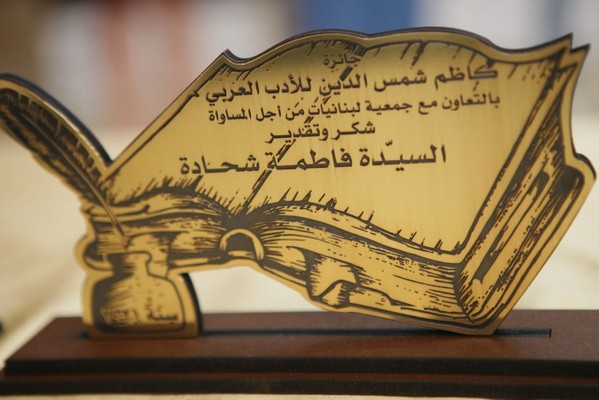 جائزة
كاظم شمس الدين للأدب العربي
بالتعاون مع جمعية لبنانيات من أجل المساواة
شكر وتقدير
السيّدة فاطمة شحادة
سنة